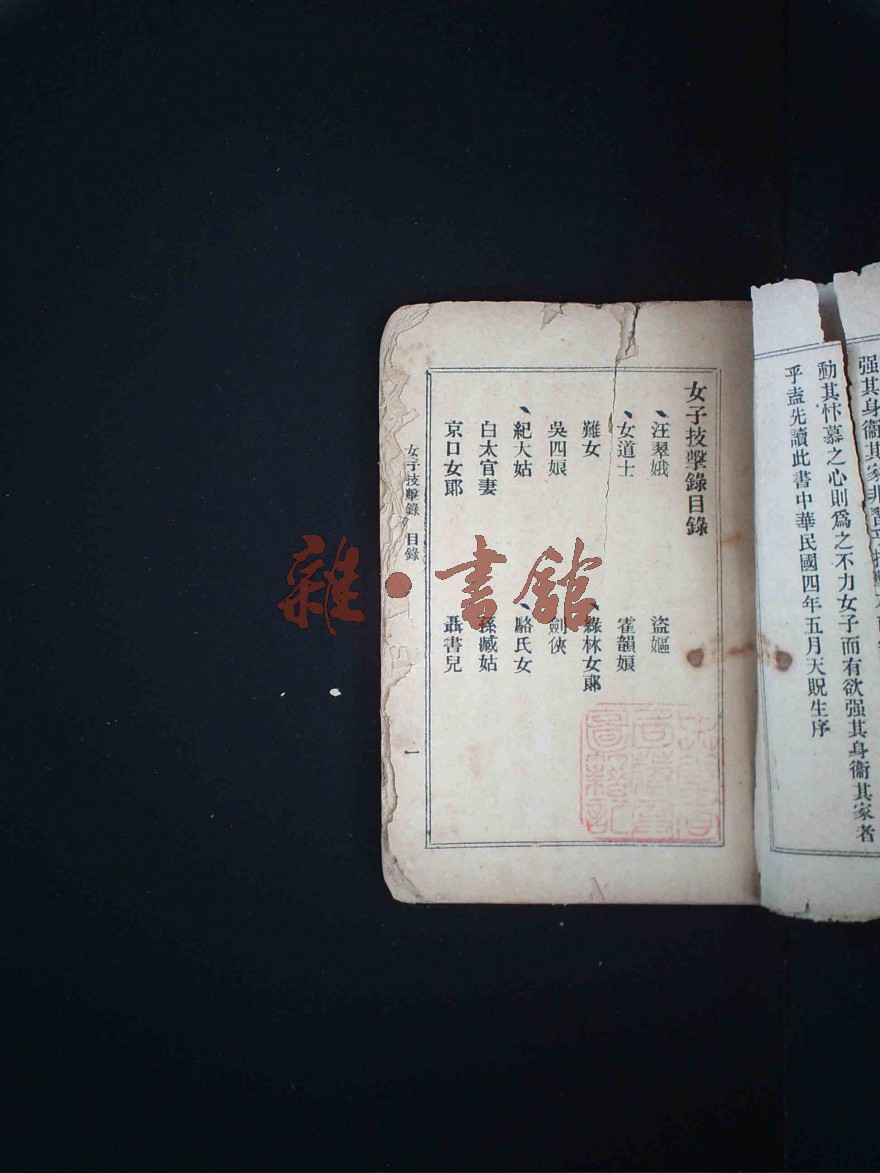 强其身衞其家非習乎技擊不
動其忭慕之心則爲之不力女子而有欲强其身衞其家者
乎盍先讀此書中華民國四年五月天貺生序
女子技擊錄目錄
汪翠娥 盜嫗
女道士 霍韻娘
難女 綠林女郞
吳四娘 劍俠
紀大姑 駱氏女
白太官妻 孫臧姑
京口女郞 聶書兒
女子技擊錄 目錄 一
雜·書館